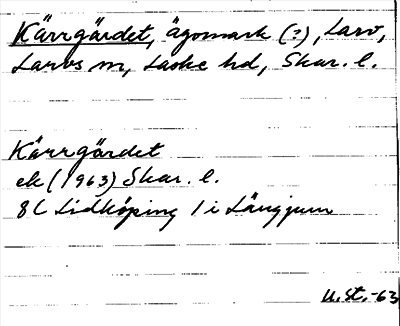 Kärrgärdet, ägomark (?), Larv,
Larvs sn, Laske hd, Skar. l.
Kärrgärdet
ek (1963) Skar. l.
8C Lidköping 1 i Längjum
U.St.-63